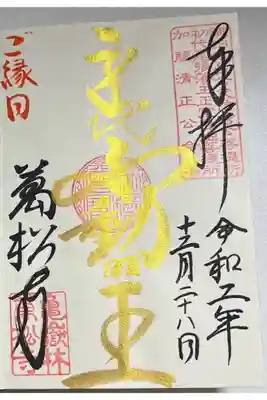 奉拝
令和二年
十二月二十八日
加藤清正公
身代不動明王
ご縁日
萬松寺
龜嶽林
萬松寺